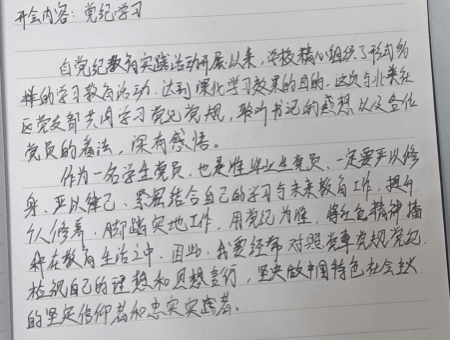 开会内容：党纪学习
自党纪教育实践活动开展以来，学校精心组织了形式多
样的学习教育活动，达到深化学习效果的目的。这次与北集社
区党支部共同学习党纪党规，聆听书记的感想以及各位
党员的看法，深有感悟。
作为一名学生党员，也是准毕业生党员，一定要严以修
身，严以律己，紧密结合自己的学习与未来教育工作，提升
个人修养，脚踏实地工作，用党纪为准，将红色精神播
种在教育生活之中，因此，我要经常对照党章党规党纪，
检视自己的理想和思想言行，坚决做中国特色社会主义
的坚定信仰者和忠实实践者。